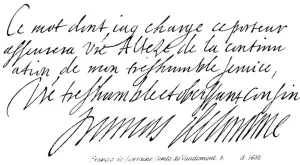 Ce mot dont j'ay chargé ce porteur
assurera Vre Alteze de la continu
ation de mon treshumble service,
Vre treshumble et obeissant cousin
Francois de Lorraine, Comte de Vaudemont. d 1632.